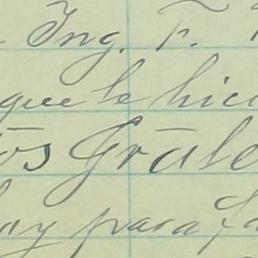 Ing. F.
que le hici
os Grāle
ay para fa